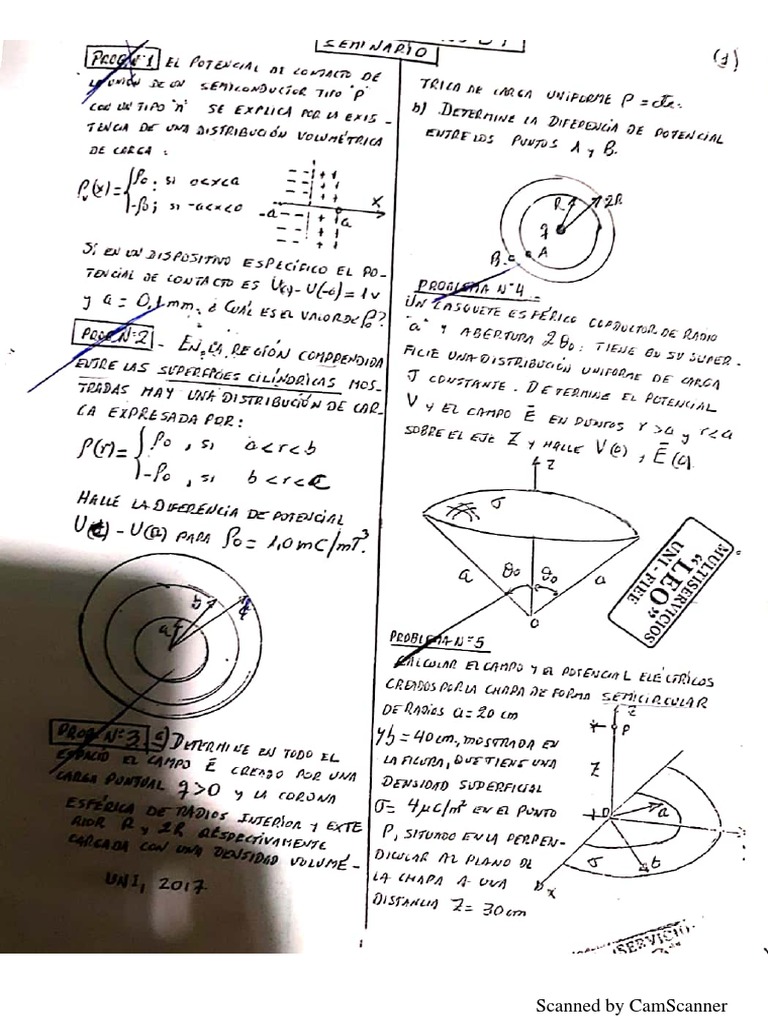 SEMINARIO
(1)
PROB Nº1 EL POTENCIAL DE CONTACTO DE
LA UNIÓN DE UN SEMICONDUCTOR TIPO "P"
CON UN TIPO "n" SE EXPLICA POR LA EXIS-
TENCIA DE UNA DISTRIBUCIÓN VOLUMÉTRICA
DE CARGA:
ρv(x) = { ρo ; si 0<x<a
-ρo ; si -a<x<0
-a
a
X
SI EN UN DISPOSITIVO ESPECÍFICO EL PO-
TENCIAL DE CONTACTO ES U(a) - U(-a) = 1V
y a = 0,1mm. ¿CUÁL ES EL VALOR DE ρo?
PROB Nº2 - EN LA REGIÓN COMPRENDIDA
ENTRE LAS SUPERFICIES CILÍNDRICAS MOS-
TRADAS HAY UNA DISTRIBUCIÓN DE CAR-
GA EXPRESADA POR:
ρ(r) = { ρo , si a<r<b
-ρo , si b<r<c
HALLE LA DIFERENCIA DE POTENCIAL
U(c) - U(a) PARA ρo = 1,0 mC/mT³.
a
b
c
PROB Nº3 a) DETERMINE EN TODO EL
ESPACIO EL CAMPO E CREADO POR UNA
CARGA PUNTUAL q>0 Y LA CORONA
ESFÉRICA DE RADIOS INTERIOR Y EXTE
RIOR R y 2R RESPECTIVAMENTE
CARGADA CON UNA DENSIDAD VOLUMÉ-
UNI, 2017
TRICA DE CARGA UNIFORME
b) DETERMINE LA DIFERENCIA DE POTENCIAL
ENTRE LOS PUNTOS A y B.
R
2R
q
B
A
PROBLEMA Nº4
UN CASQUETE ESFÉRICO CONDUCTOR DE RADIO
"a" Y ABERTURA 2θo: TIENE EN SU SUPER-
FICIE UNA DISTRIBUCIÓN UNIFORME DE CARGA
σ CONSTANTE. DETERMINE EL POTENCIAL
V Y EL CAMPO E EN PUNTOS r>a y r<a
SOBRE EL EJE Z Y HALLE V(0), E(0).
Z
σ
a
θo
θo
a
O
MULTISERVICIOS
"LEO"
UNI - FIEE
PROBLEMA Nº5
CALCULAR EL CAMPO Y EL POTENCIAL ELÉCTRICOS
CREADOS POR LA CHAPA DE FORMA SEMICIRCULAR
DE RADIOS a = 20 cm
y b = 40 cm, MOSTRADA EN
LA FIGURA, QUE TIENE UNA
DENSIDAD SUPERFICIAL
σ = 4μC/m² EN EL PUNTO
P, SITUADO EN LA PERPEN-
DICULAR AL PLANO DE
LA CHAPA A UNA
DISTANCIA Z = 30 cm
z
P
Z
a
σ
b
x
SERVICIO
Scanned by CamScanner